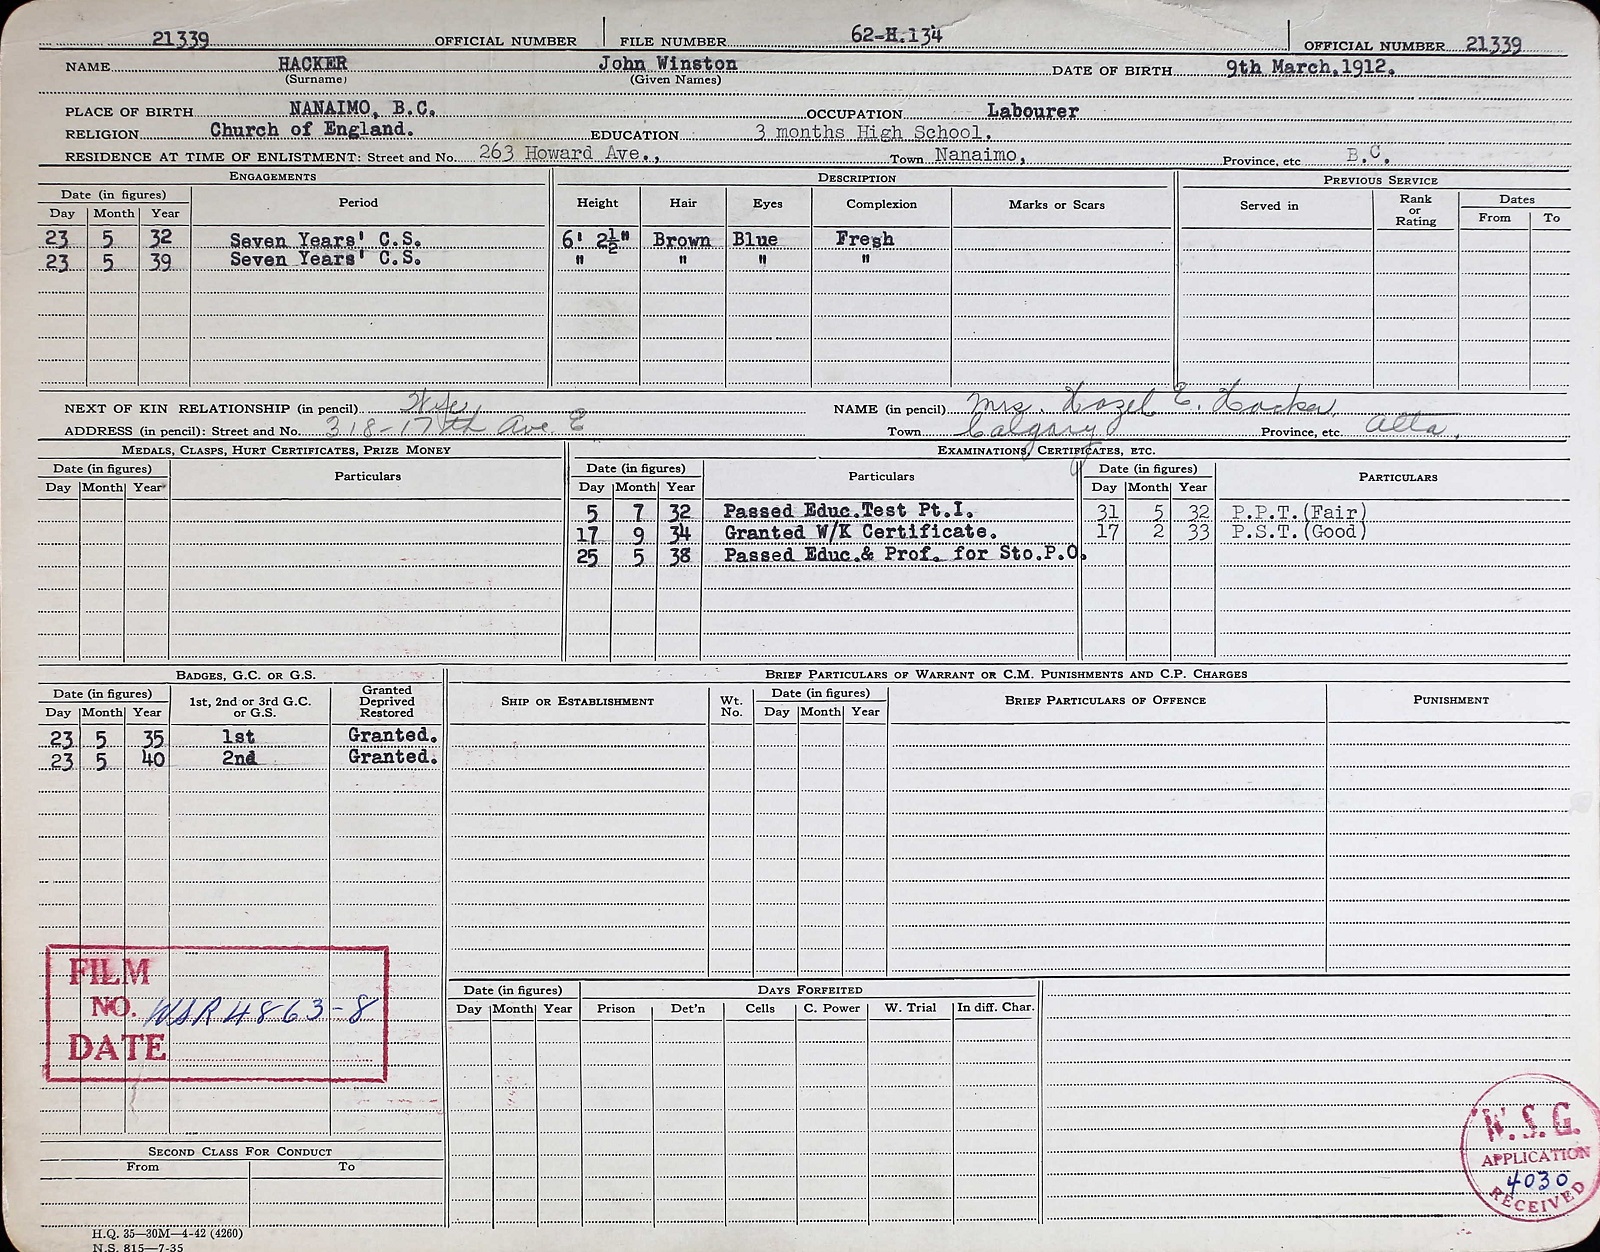 21339 OFFICIAL NUMBER FILE NUMBER 62-H.134 OFFICIAL NUMBER 21339
NAME HACKER John Winston DATE OF BIRTH 9th March.1912.
(Surname) (Given Names)
PLACE OF BIRTH NANAIMO, B.C. OCCUPATION Labourer
RELIGION Church of England. EDUCATION 3 months High School.
RESIDENCE AT TIME OF ENLISTMENT: Street and No. 263 Howard Ave., Town Nanaimo, Province, etc B.C.
ENGAGEMENTS DESCRIPTION PREVIOUS SERVICE
Date (in figures) Period Height Hair Eyes Complexion Marks or Scars Served in Rank or Rating Dates
Day Month Year From To
23 5 32 Seven Years' C.S. 6' 2½" Brown Blue Fresh
23 5 39 Seven Years' C.S. " " " "
NEXT OF KIN RELATIONSHIP (in pencil) Wife NAME (in pencil) Mrs. Hazel E. Hacker
ADDRESS (in pencil): Street and No. 318-17th Ave E Town Calgary Province, etc. Alta.
MEDALS, CLASPS, HURT CERTIFICATES, PRIZE MONEY EXAMINATIONS, CERTIFICATES, ETC.
Date (in figures) Particulars Date (in figures) Particulars Date (in figures) PARTICULARS
Day Month Year Day Month Year Day Month Year
5 7 32 Passed Educ.Test Pt.I. 31 5 32 P.P.T.(Fair)
17 9 34 Granted W/K Certificate. 17 2 33 P.S.T.(Good)
25 5 38 Passed Educ.& Prof. for Sto.P.O.
BADGES, G.C. OR G.S. BRIEF PARTICULARS OF WARRANT OR C.M. PUNISHMENTS AND C.P. CHARGES
Date (in figures) 1st, 2nd or 3rd G.C. or G.S. Granted Deprived Restored SHIP OR ESTABLISHMENT Wt. No. Date (in figures) BRIEF PARTICULARS OF OFFENCE PUNISHMENT
Day Month Year Day Month Year
23 5 35 1st Granted.
23 5 40 2nd Granted.
FILM
NO. WSR4863-8
DATE
Date (in figures) DAYS FORFEITED
Day Month Year Prison Det'n Cells C. Power W. Trial In diff. Char.
W.S.G.
APPLICATION
4030
RECEIVED
SECOND CLASS FOR CONDUCT
From To
H.Q. 35—30M—4-42 (4260)
N.S. 815—7-35